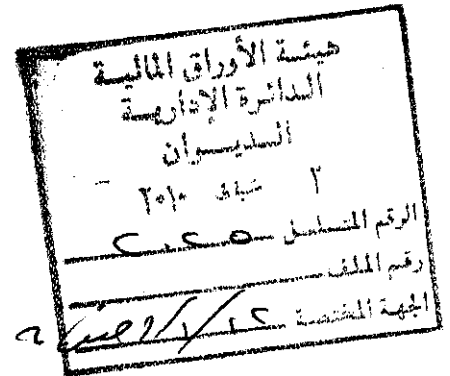 هيئة الأوراق المالية
الدائرة الإدارية
الديوان
٢ شباط ٢٠١٠
الرقم المتسلسل
رقم الملف
الجهة المختصة